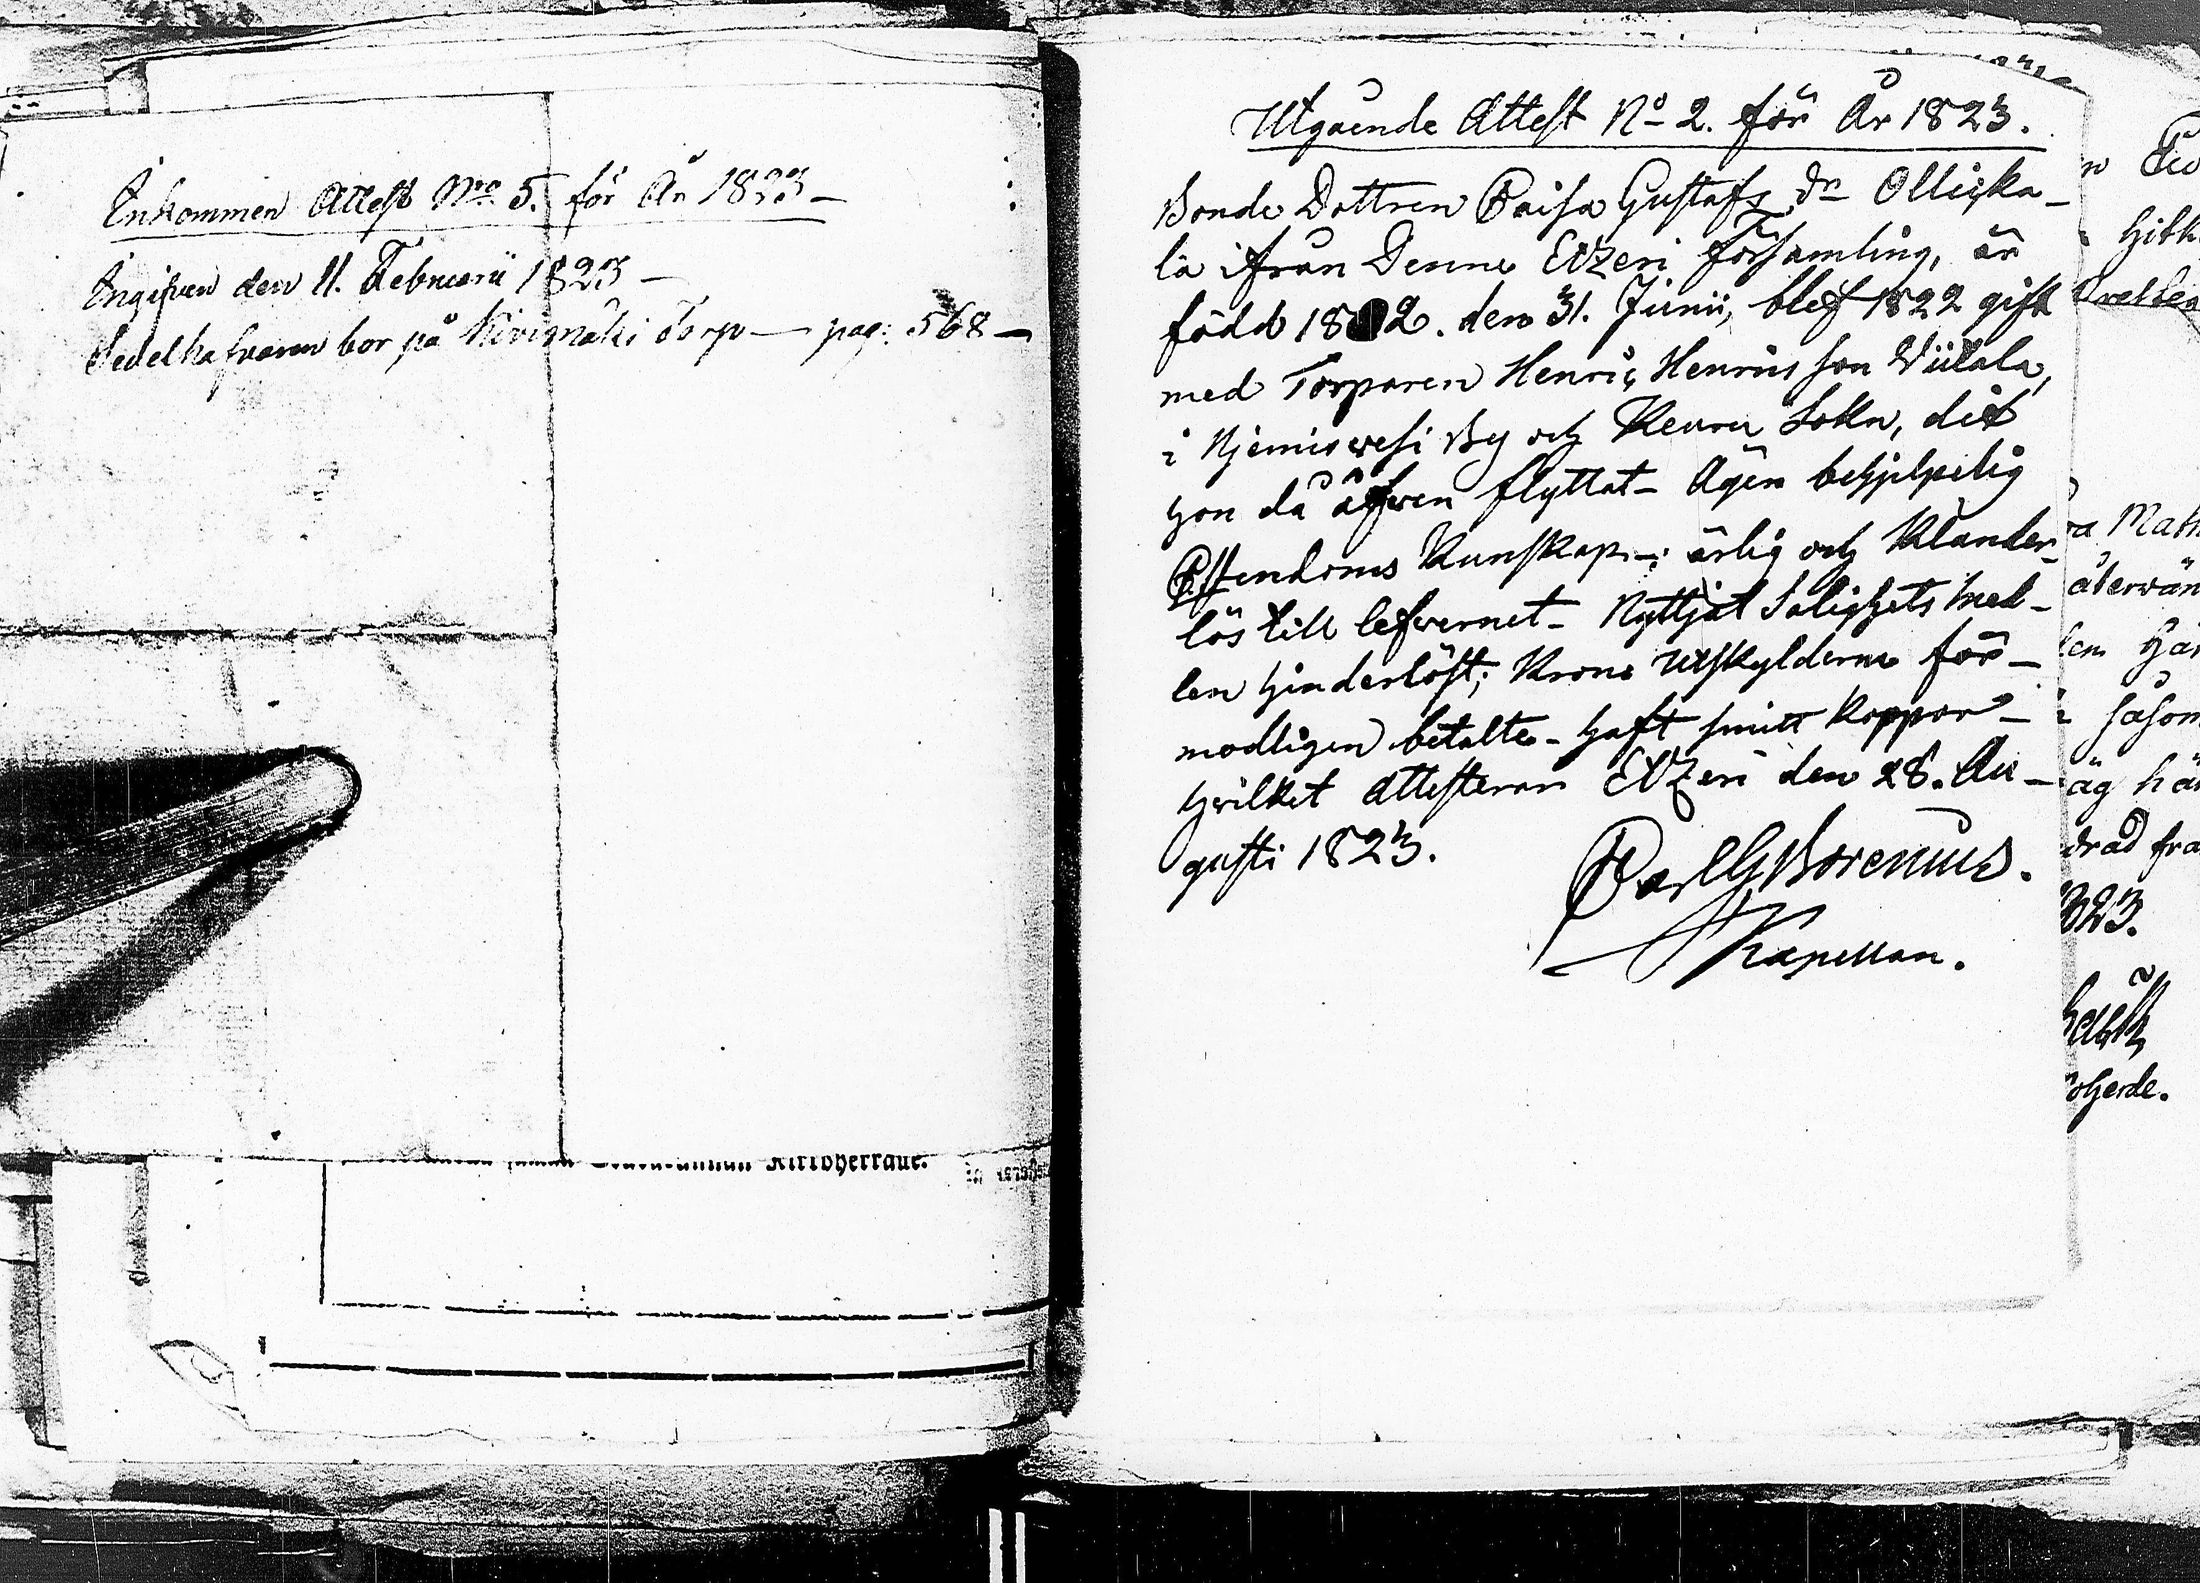 Inkommen Attest No 5. för År 1823 –
Ingifven den 11. Februarii 1823 –
Sedelhafvaren bor på Kivimäki Torp – pag: 568 –
Kirkoherraut.
Utgående Attest No 2. för År 1823.
Bonde Dottren Caisa Gustafs dr Ollicka-
la ifrån Denne Etzeri Församling, är
född 1802. den 31. Junii, blef 1822 gift
med Torparen Henric Henrics son Viitala,
i Njemisvesi By och Keuru Sokn, dit
hon då äfwen flyttat – Ägen behjelpelig
Christendoms Kunskap –; ärlig och Klander-
lös till lefwernet – Nyttjat Salighets Med-
len hinderlöst; Krono Utskylderne för-
modligen betalte – haft smitt Koppor –
hwilket Attesteras Etzeri den 28. Au-
gusti 1823.
Carl G Borenius.
Kapellan.
a Math
återvän
såsom
äg här
drad fra
823.